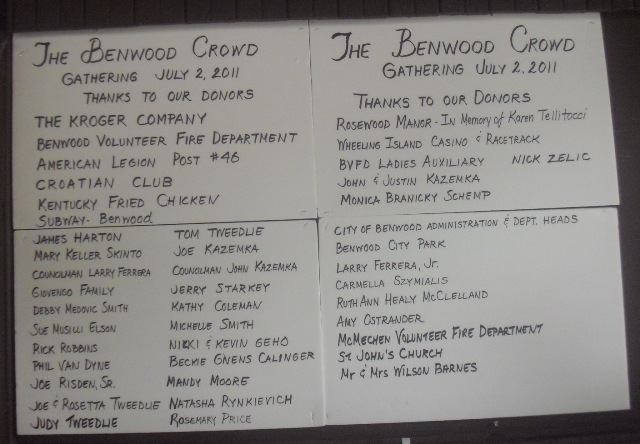 THE BENWOOD CROWD
GATHERING JULY 2, 2011
THANKS TO OUR DONORS
THE KROGER COMPANY
BENWOOD VOLUNTEER FIRE DEPARTMENT
AMERICAN LEGION POST #46
CROATIAN CLUB
KENTUCKY FRIED CHICKEN
SUBWAY- Benwood
JAMES HARTON
MARY KELLER SKINTO
COUNCILMAN LARRY FERRERA
GIOVENGO FAMILY
DEBBY MEDOVIC SMITH
SUE MUSILLI ELSON
RICK ROBBINS
PHIL VAN DYNE
JOE RISDEN, SR.
JOE & ROSETTA TWEEDLIE
JUDY TWEEDLIE
TOM TWEEDLIE
JOE KAZEMKA
COUNCILMAN JOHN KAZEMKA
JERRY STARKEY
KATHY COLEMAN
MICHELLE SMITH
NIKKI & KEVIN GEHO
BECKIE GIVENS CALINGER
MANDY MOORE
NATASHA RYNKIEVICH
ROSEMARY PRICE
THE BENWOOD CROWD
GATHERING JULY 2, 2011
THANKS TO OUR DONORS
ROSEWOOD MANOR - IN Memory of Karen Tellitocci
WHEELING ISLAND CASINO & RACETRACK
BVFD LADIES AUXILIARY NICK ZELIC
JOHN & JUSTIN KAZEMKA
MONICA BRANICKY SCHEMP
CITY OF BENWOOD ADMINISTRATION & DEPT. HEADS
BENWOOD CITY PARK
LARRY FERRERA, JR.
CARMELLA SZYMIALIS
RUTH ANN HEALY McCLELLAND
AMY OSTRANDER
McMECHEN VOLUNTEER FIRE DEPARTMENT
ST JOHN'S CHURCH
MR & MRS WILSON BARNES